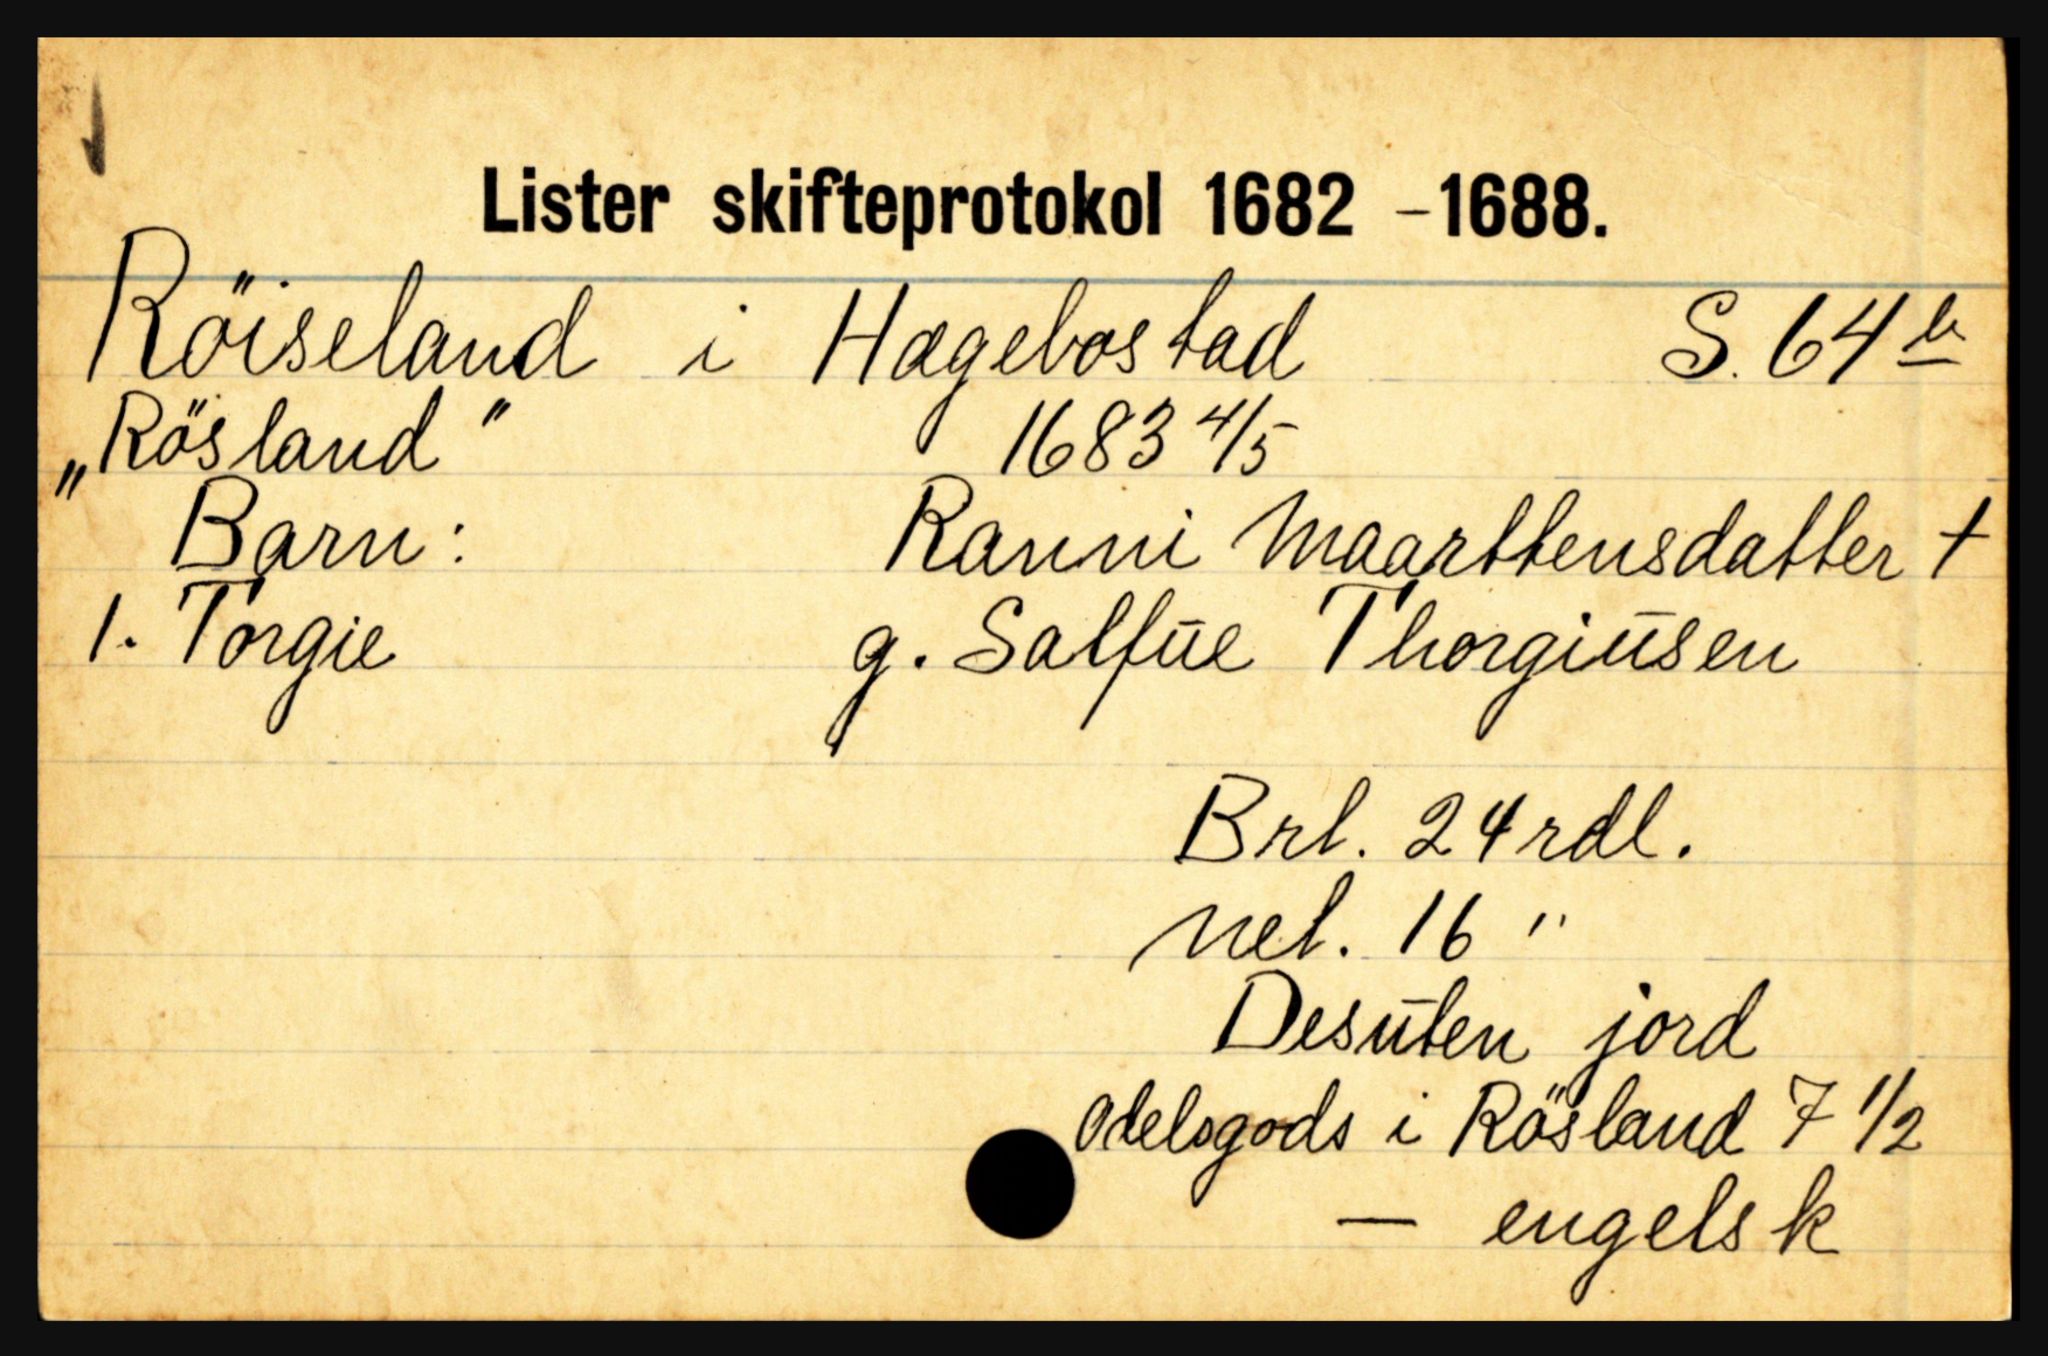 Lister skifteprotokol 1682 - 1688.
Röiseland i Hægebostad S. 64 b
„Rösland" 1683 4/5
Barn: Ranni Maarttensdatter †
1. Torgie g. Salfue Thorgiusen
Brl. 24 rdl.
Nel. 16 "
Desuten jord
Odelsgods i Rösland 7 1/2
— engelsk